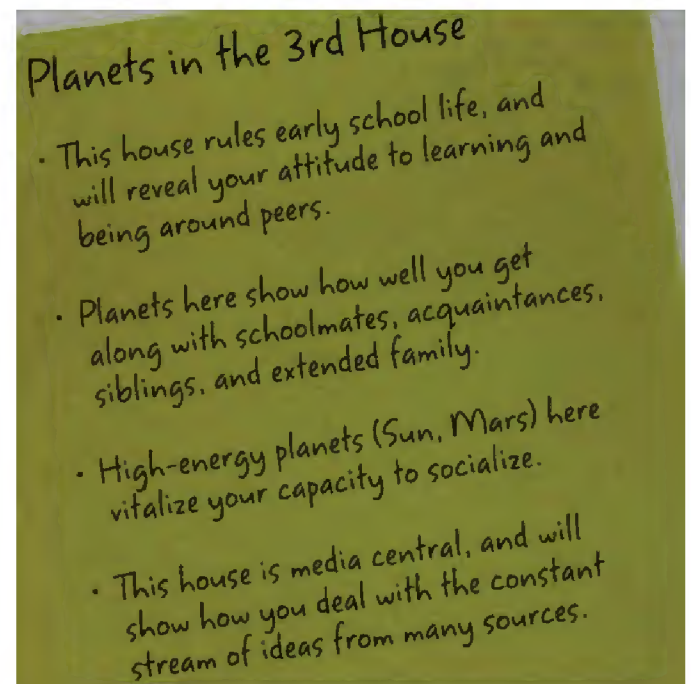 Planets in the 3rd House
· This house rules early school life, and
will reveal your attitude to learning and
being around peers.
· Planets here show how well you get
along with schoolmates, acquaintances,
siblings, and extended family.
· High-energy planets (Sun, Mars) here
vitalize your capacity to socialize.
· This house is media central, and will
show how you deal with the constant
stream of ideas from many sources.